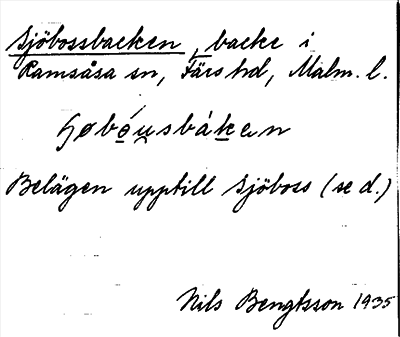 Sjöbossbacken, backe i
Ramsåsa sn, Färs hd, Malm. l.
Belägen upptill Sjöboss (se d.)
Nils Bengtsson 1935